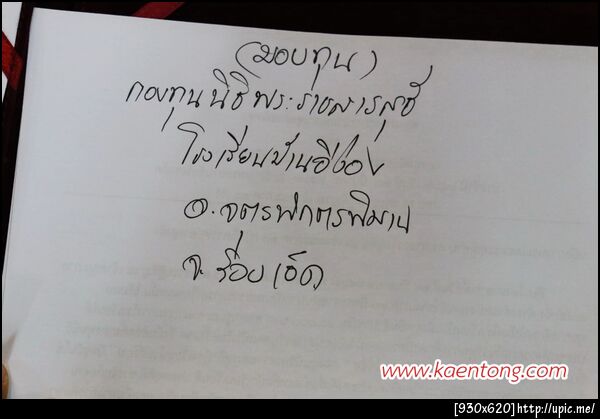 (มอบทุน)
กองทุนนิธิพระราชสารสุธี
โรงเรียนบ้านอีง่อง
อ.จตุรพักตรพิมาน
จ.ร้อยเอ็ด
www.kaentong.com
[930x620]http://upic.me/